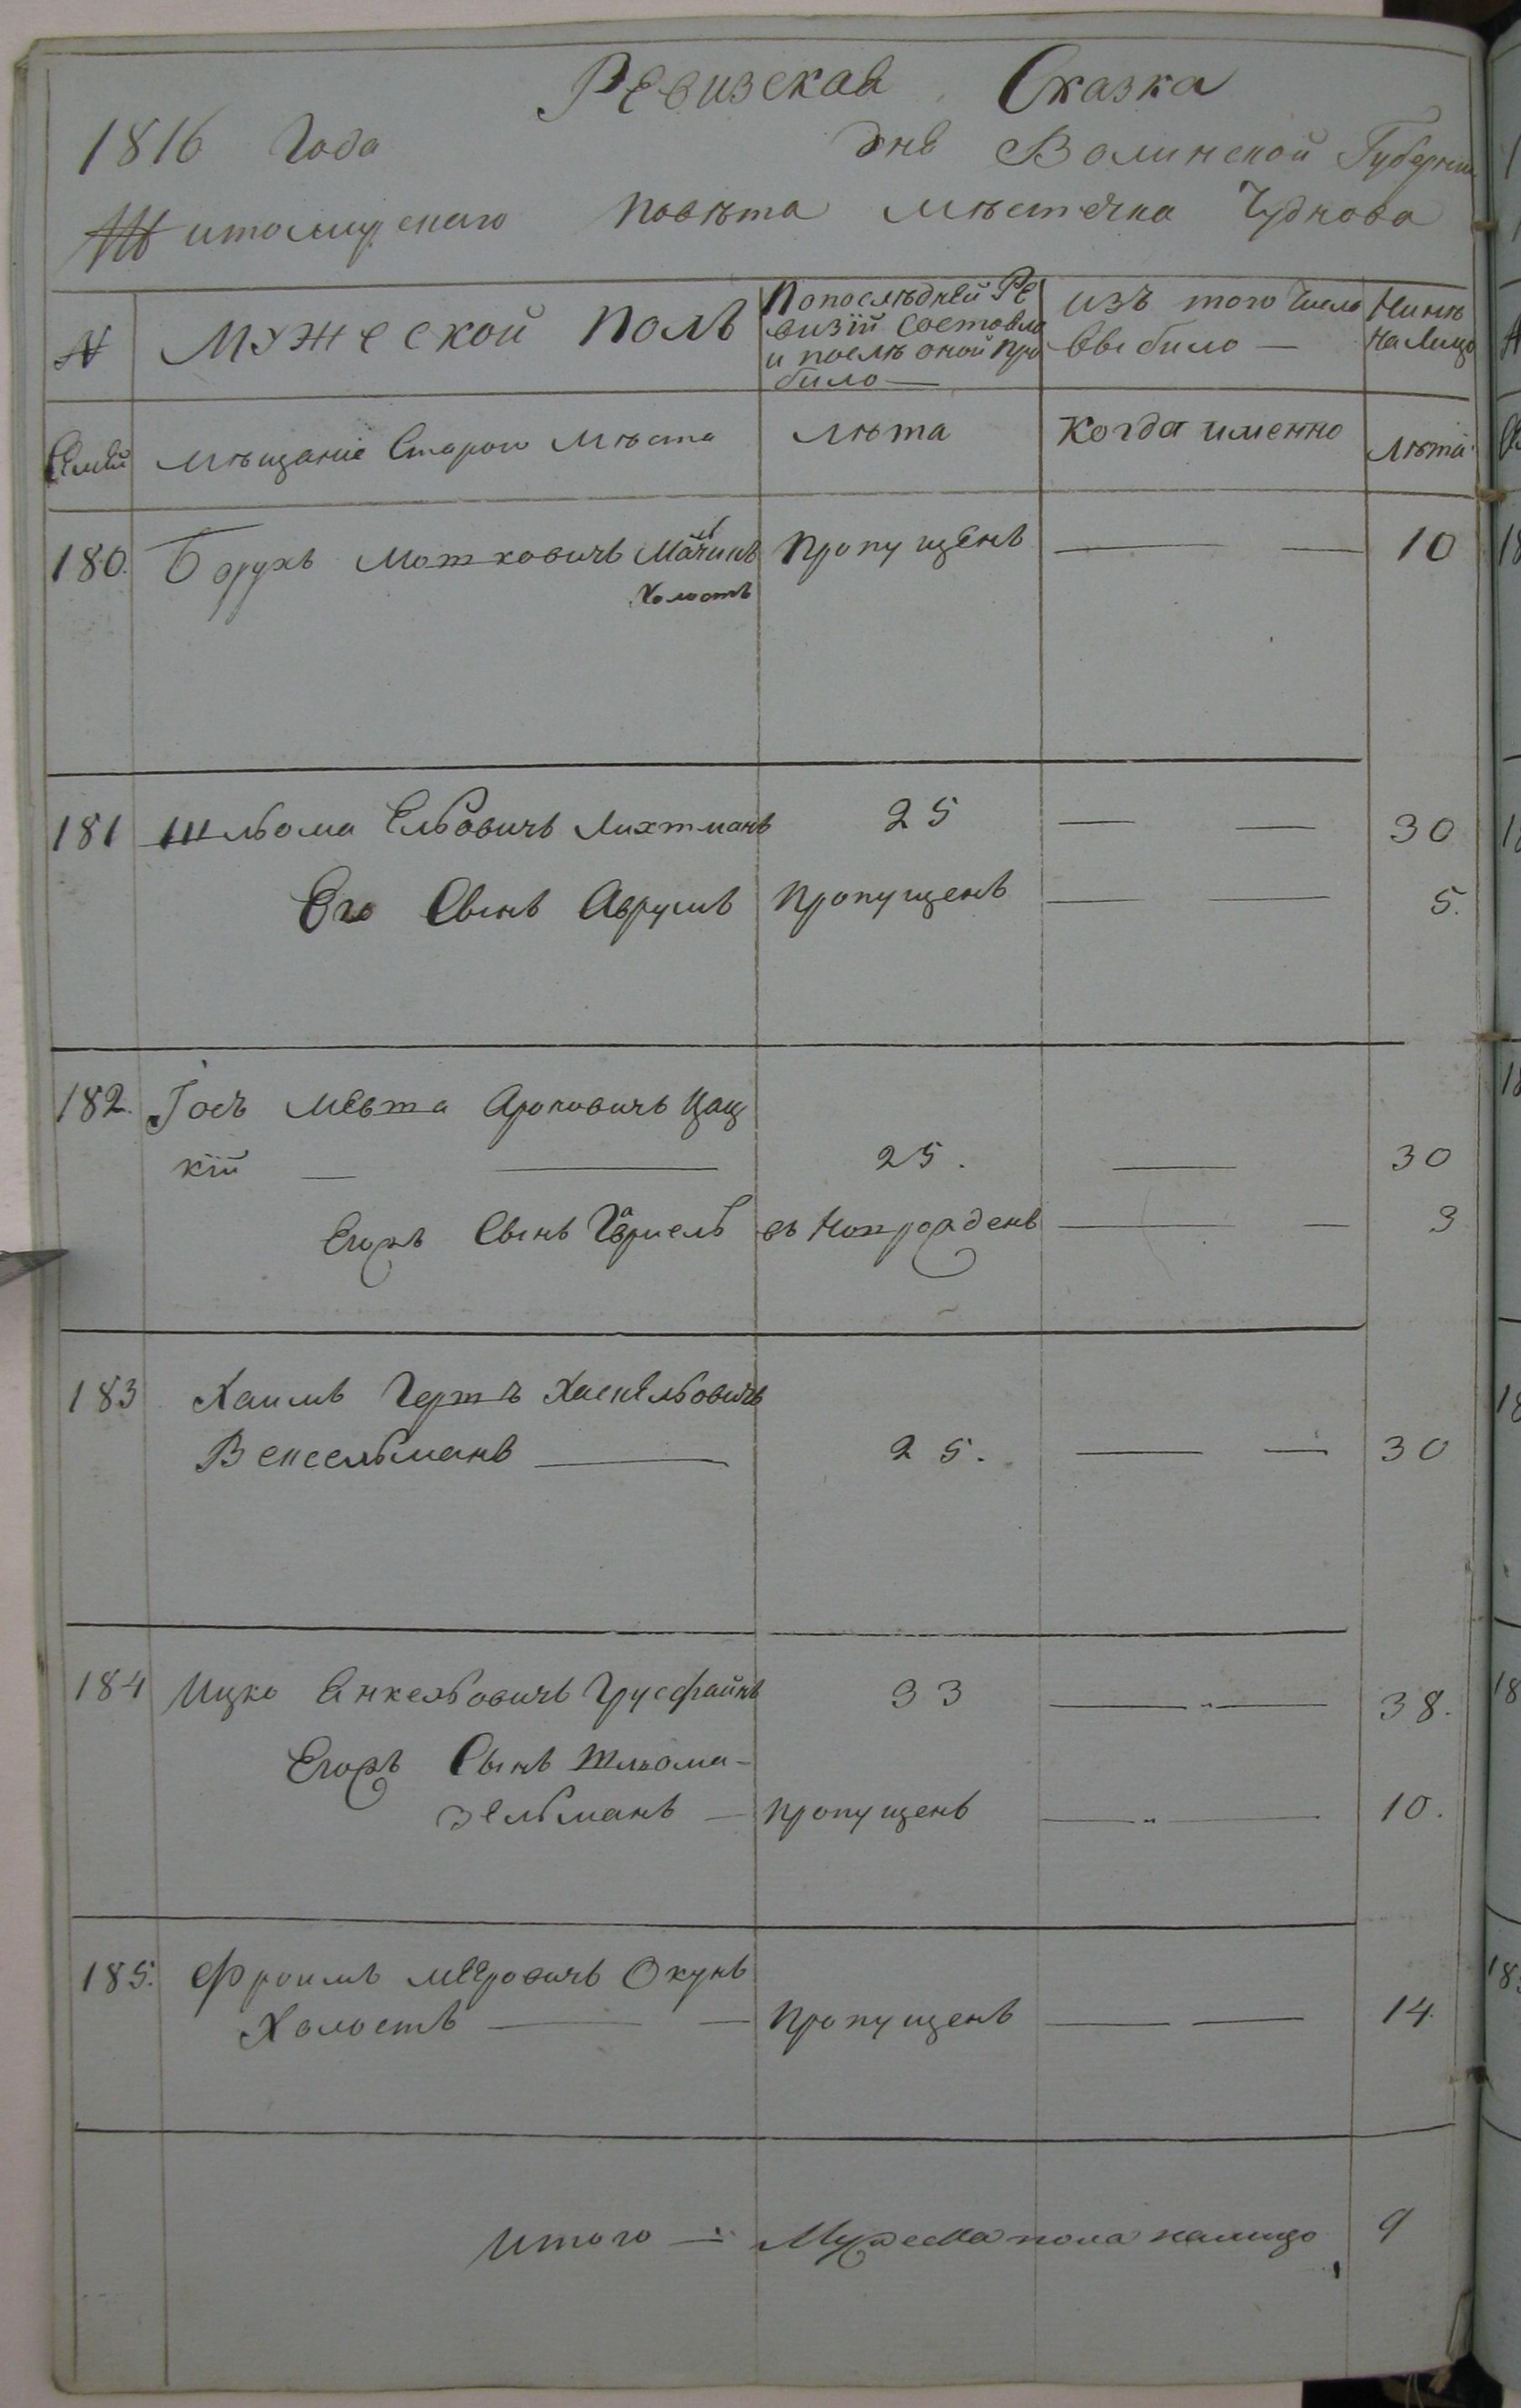 Ревизская Сказка
1816 Года дня Волинской Губернии
Житомирскаго повѣта мѣстечка Чуднова
N Мужеской Полъ По последней Ревизiй состояло и после оной прибило Изъ того числа выбило Нинѣ на лицо
Семей мѣщание Старои Мѣста лѣта Когда именно лѣта
180. Борухъ Мошковичъ пропущенъ 10
Холостъ
181 Шльома Ельовичъ Лихтманъ 25 30
Его Сынъ Аврумъ пропущенъ 5.
182. Госъ Ароновичъ Цац
кiй 25. 30
Егожъ Сынъ Гавриель въ Новорожденъ 3
183 Хаимъ Герш Хаскельовичъ
Венсельманъ 25. 30
184 Ицко Янкельовичъ Грусфайнъ 33 38.
Егожъ Сынъ Шльома-
Зельманъ пропущенъ 10.
185. Фроимъ Мееровичъ Окунь
Холостъ пропущенъ 14.
Итого Мужеска пола налицо 9